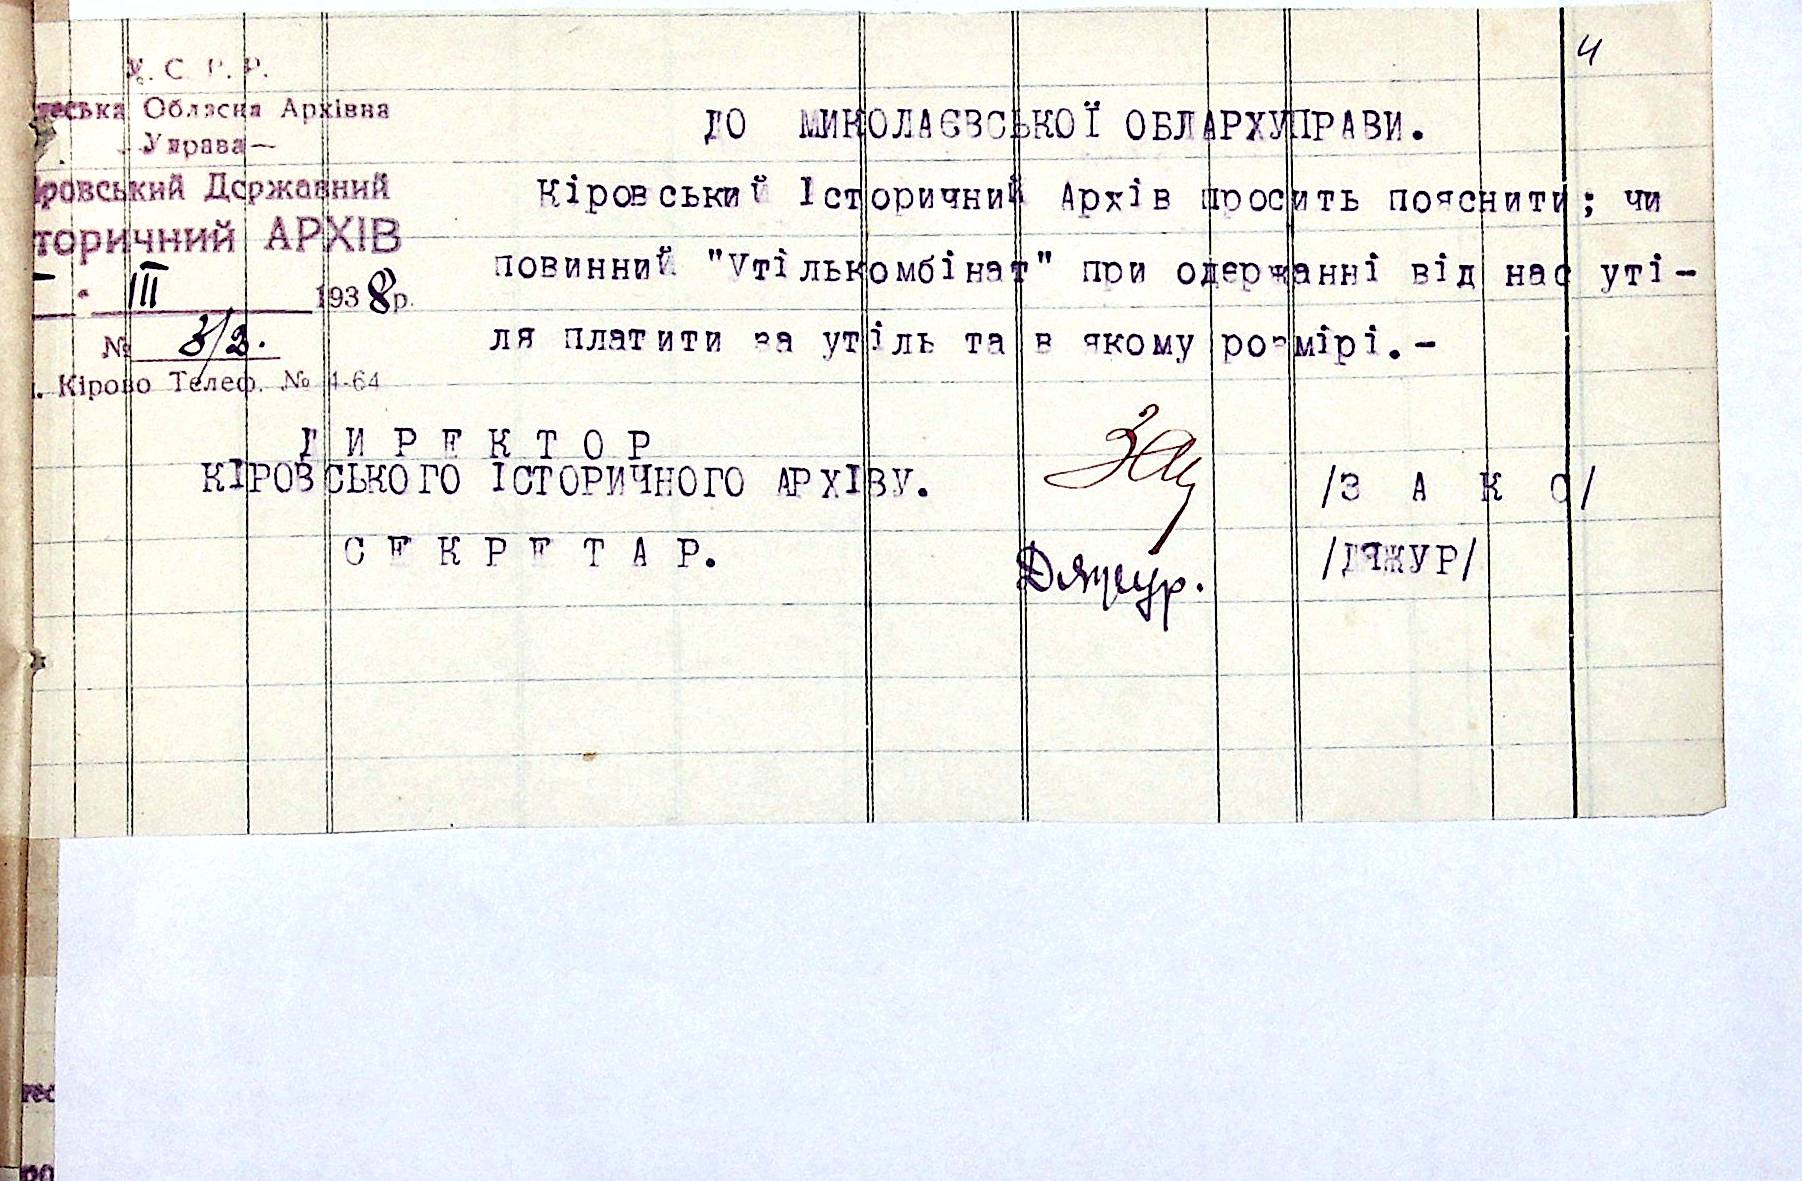 4
У. С. Р. Р.
деська Обласна Архівна
Управа—
іровський Державний
торичний АРХІВ
III 1938р.
№ 3/2.
. Кірово Телеф. № 1-64
ДО МИКОЛАЄВСЬКОЇ ОБЛАРХУПРАВИ.
Кіровський Історичний Архів просить пояснити; чи
повинний "Утількомбінат" при одержанні від нас уті-
ля платити за утіль та в якому розмірі.-
ДИРЕКТОР
КІРОВСЬКОГО ІСТОРИЧНОГО АРХІВУ.
/ЗАКС/
СЕКРЕТАР.
Дяжур.
/ДЯЖУР/